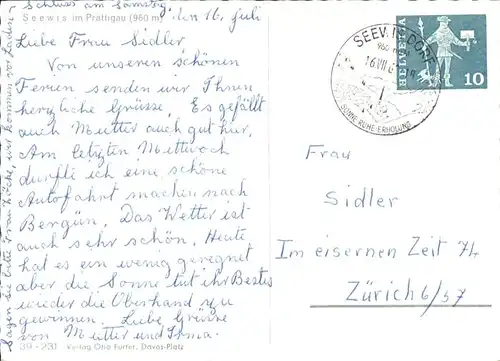 Schluss am Samstag
Seewis im Prättigau (960 m)
den 16. Juli
Liebe Frau Sidler,
Von unseren schönen
Ferien senden wir Ihnen
herzliche Grüsse. Es gefällt
auch Mutter auch gut hier.
Am letzten Mittwoch
durfte ich eine schöne
Autofahrt machen nach
Bergün. Das Wetter ist
auch sehr schön. Heute
hat es ein wenig geregnet
aber die Sonne tut ihr Bestes
wieder die Oberhand zu
gewinnen. Liebe Grüsse
von Mutter und Irma.
39 - 230 Verlag Otto Furter, Davos-Platz
Sagen sie bitte Frau wir kommen vor Laden
SEEWIS DORF
960
16.VII.6
SONNE RUHE ERHOLUNG
HELVETIA
10
Frau
Sidler
Im eisernen Zeit 74
Zürich 6/57